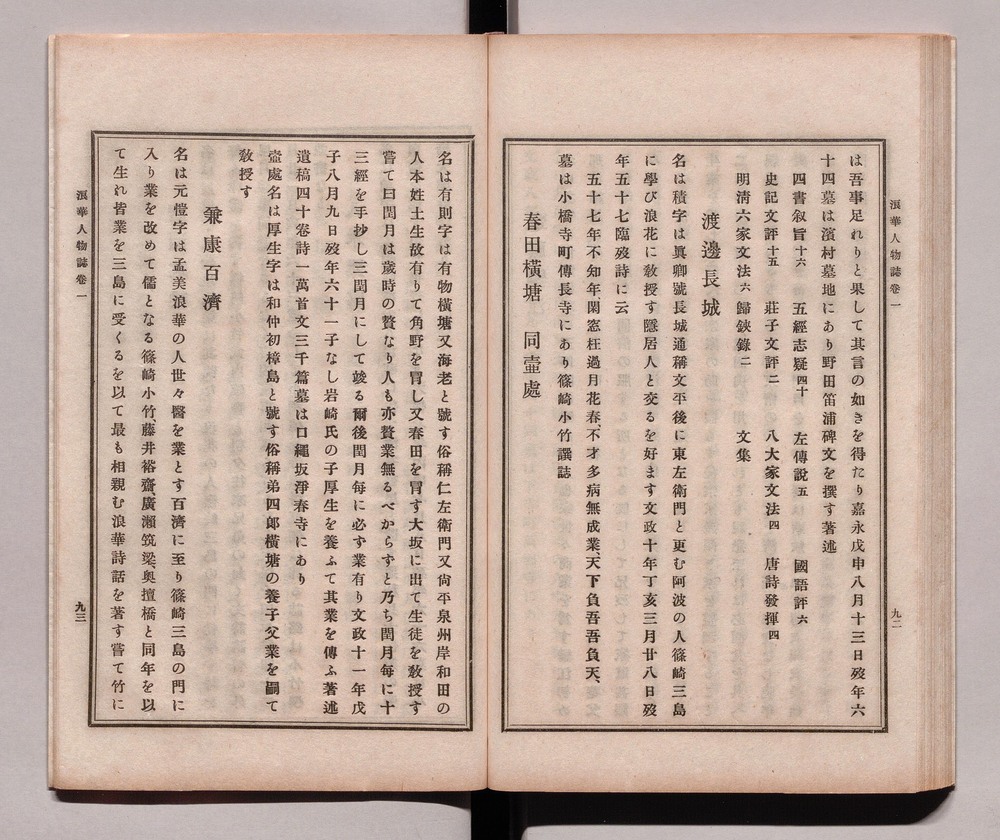 浪華人物誌卷一
九二
は吾事足れりと果して其言の如きを得たり嘉永戊申八月十三日歿年六
十四墓は濱村墓地にあり野田笛浦碑文を撰す著述
四書叙旨十六　五經志疑四十　左傳說五　國語評六
史記文評十五　莊子文評二　八大家文法四　唐詩發揮四
明淸六家文法六　歸鋏錄二　文集
渡邊長城
名は積字は眞卿號長城通稱文平後に東左衛門と更む阿波の人篠崎三島
に學び浪花に敎授す隱居人と交るを好ます文政十年丁亥三月廿八日歿
年五十七臨歿詩に云
五十七年不知年、閑窓枉過月花春、不才多病無成業、天下負吾吾負天、
墓は小橋寺町傳長寺にあり篠崎小竹譔誌
春田橫塘　同壷處
名は有則字は有物橫塘又海老と號す俗稱仁左衛門又尙平泉州岸和田の
人本姓土生故有りて角野を冐し又春田を冐す大坂に出て生徒を敎授す
嘗て曰閏月は歲時の贅なり人も亦贅業無るべからすと乃ち閏月每に十
三經を手抄し三閏月にして竣る爾後閏月每に必ず業有り文政十一年戊
子八月九日歿年六十一子なし岩崎氏の子厚生を養ふて其業を傳ふ著述
遺稿四十卷詩一萬首文三千篇墓は口繩坂淨春寺にあり
壷處名は厚生字は和仲初樟島と號す俗稱弟四郞橫塘の養子父業を嗣て
敎授す
兼康百濟
名は元愷字は孟美浪華の人世々醫を業とす百濟に至り篠崎三島の門に
入り業を改めて儒となる篠崎小竹、藤井裕齋、廣瀨筑梁、奧擅橋と同年を以
て生れ皆業を三島に受くるを以て最も相親む浪華詩話を著す嘗て竹に
浪華人物誌卷一
九三